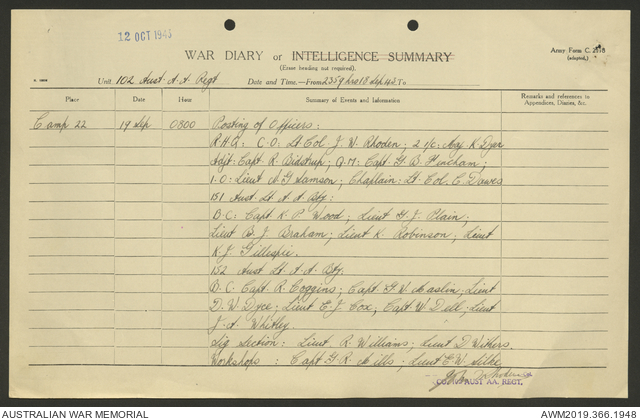 12 OCT 1943
WAR DIARY or INTELLIGENCE SUMMARY
(Erase heading not required).
Army Form C. 2118
(adapted.)
Unit 102 Aust. A.A. Regt
Date and Time.—From 2359 hrs 18 Sep 43 To
Place Date Hour Summary of Events and Information Remarks and references to
Appendices, Diaries, &c.
Camp 22 19 Sep 0800 Posting of Officers:
R.H.Q: C.O. Lt Col J. W. Rhoden; 2 i/c: Maj. K. Dyer
Adjt: Capt R. Bidstrup; Q.M: Capt G. B. Fincham;
I.O: Lieut Samson; Chaplain: Lt. Col. C. Dawes
151 Aust. Lt. A.A. Bty:
B.C: Capt K. P. Wood; Lieut J. Plain;
Lieut B. J. Braham; Lieut K. Robinson; Lieut
K. J. Gillespie.
152 Aust Lt. A.A. Bty.
B.C. Capt. R. Coggins; Capt. Maslin; Lieut
D. W. Dyce; Lieut E. J. Cox; Capt W. Dell; Lieut
J. A. Whitley.
Sig Section: Lieut R. Williams; Lieut D. Withers.
Workshops: Capt R. Mills; Lieut E. W. Silke
CO. 102 AUST AA. REGT.
AUSTRALIAN WAR MEMORIAL
AWM2019.366.1948